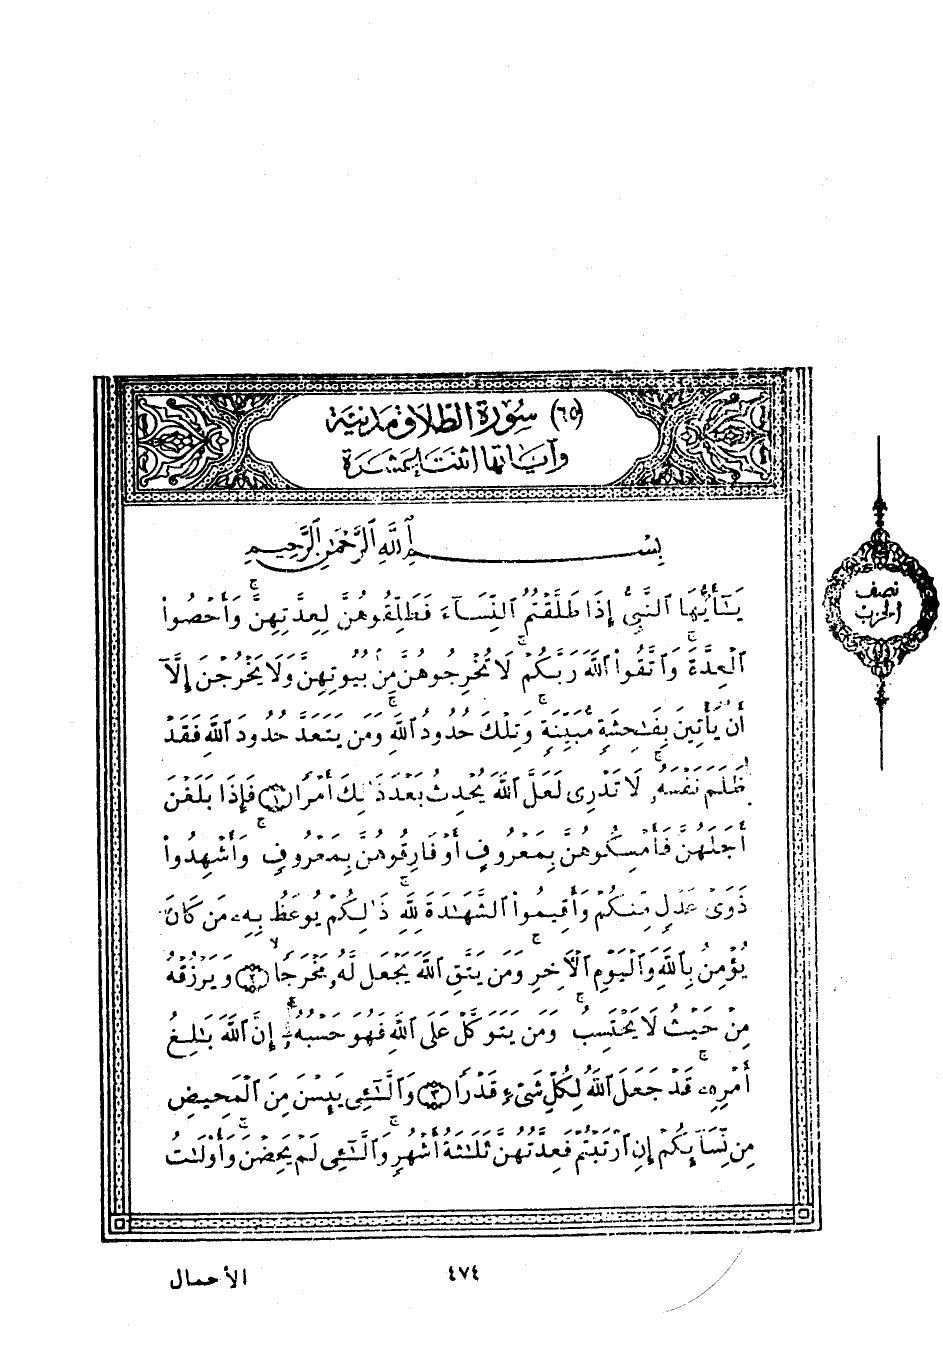 (٦٥) سُورَةِ الطَّلَاقِ مَدَنِيَّة
وَآيَاتُهَا اثْنَتَا عَشَرَة
بِسْمِ ٱللَّهِ ٱلرَّحْمَٰنِ ٱلرَّحِيمِ
نصف الحزب
يَـٰٓأَيُّهَا ٱلنَّبِىُّ إِذَا طَلَّقْتُمُ ٱلنِّسَآءَ فَطَلِّقُوهُنَّ لِعِدَّتِهِنَّ وَأَحْصُوا۟
ٱلْعِدَّةَ ۖ وَٱتَّقُوا۟ ٱللَّهَ رَبَّكُمْ ۖ لَا تُخْرِجُوهُنَّ مِنۢ بُيُوتِهِنَّ وَلَا يَخْرُجْنَ إِلَّآ
أَن يَأْتِينَ بِفَـٰحِشَةٍ مُّبَيِّنَةٍ ۚ وَتِلْكَ حُدُودُ ٱللَّهِ ۚ وَمَن يَتَعَدَّ حُدُودَ ٱللَّهِ فَقَدْ
ظَلَمَ نَفْسَهُۥ ۚ لَا تَدْرِى لَعَلَّ ٱللَّهَ يُحْدِثُ بَعْدَ ذَٰلِكَ أَمْرًا (١) فَإِذَا بَلَغْنَ
أَجَلَهُنَّ فَأَمْسِكُوهُنَّ بِمَعْرُوفٍ أَوْ فَارِقُوهُنَّ بِمَعْرُوفٍ ۚ وَأَشْهِدُوا۟
ذَوَىْ عَدْلٍ مِّنكُمْ وَأَقِيمُوا۟ ٱلشَّهَـٰدَةَ لِلَّهِ ۚ ذَٰلِكُمْ يُوعَظُ بِهِۦ مَن كَانَ
يُؤْمِنُ بِٱللَّهِ وَٱلْيَوْمِ ٱلْـَٔاخِرِ ۚ وَمَن يَتَّقِ ٱللَّهَ يَجْعَل لَّهُۥ مَخْرَجًا (٢) وَيَرْزُقْهُ
مِنْ حَيْثُ لَا يَحْتَسِبُ ۚ وَمَن يَتَوَكَّلْ عَلَى ٱللَّهِ فَهُوَ حَسْبُهُۥٓ ۚ إِنَّ ٱللَّهَ بَـٰلِغُ
أَمْرِهِۦ ۚ قَدْ جَعَلَ ٱللَّهُ لِكُلِّ شَىْءٍ قَدْرًا (٣) وَٱلَّـٰٓـِٔى يَئِسْنَ مِنَ ٱلْمَحِيضِ
مِن نِّسَآئِكُمْ إِنِ ٱرْتَبْتُمْ فَعِدَّتُهُنَّ ثَلَـٰثَةُ أَشْهُرٍ ۚ وَٱلَّـٰٓـِٔى لَمْ يَحِضْنَ ۚ وَأُو۟لَـٰتُ
٤٧٤
الأحمال